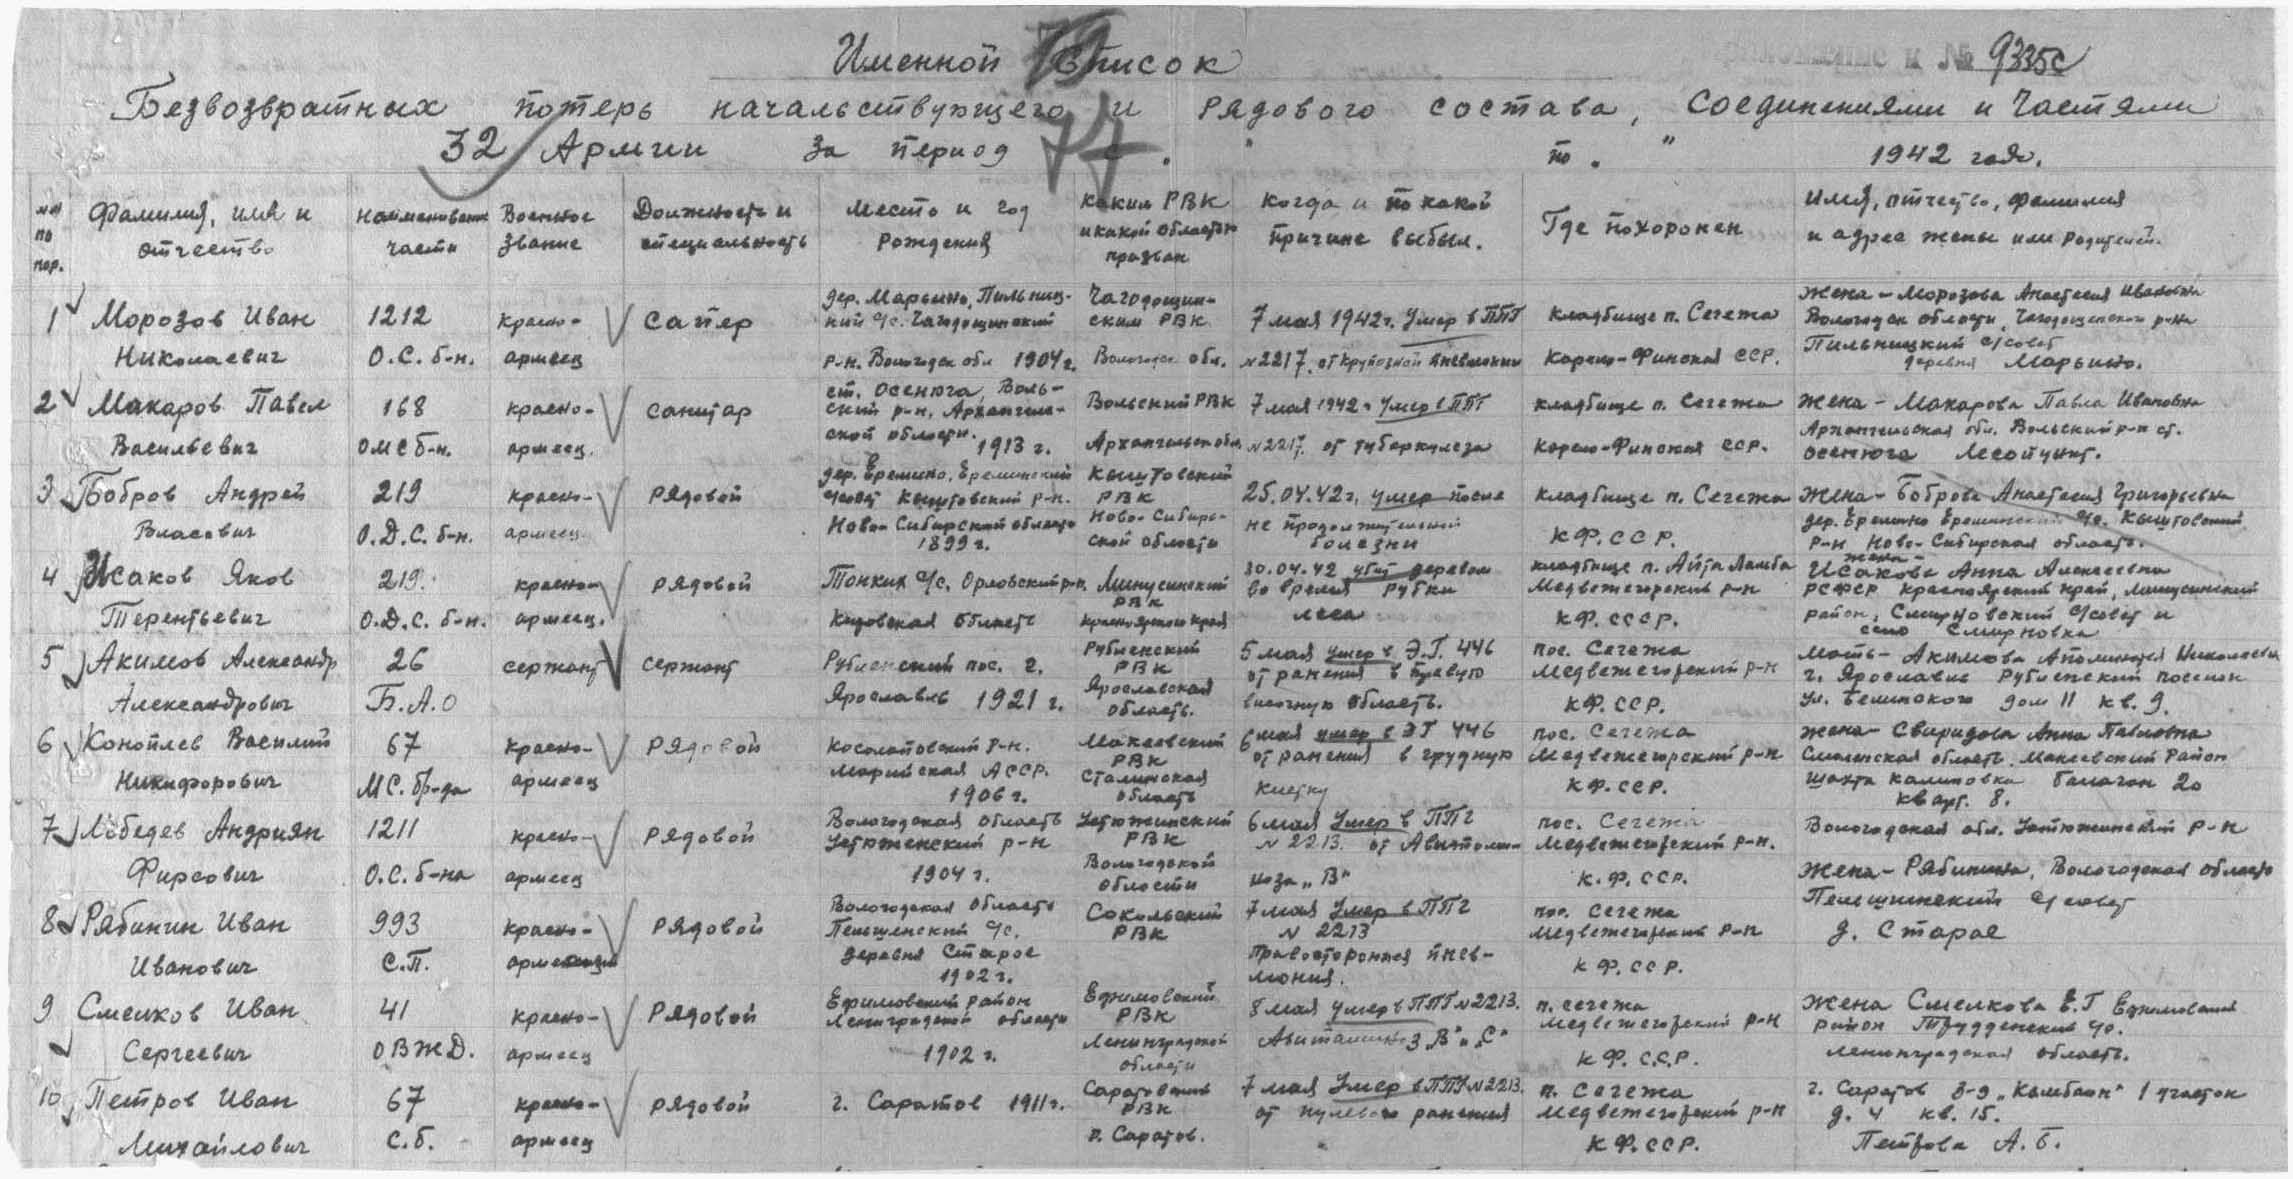 Именной список
Приложение к № 9335с
Безвозвратных потерь начальствующего и рядового состава, соединениями и частями
32 Армии за период с " по " 1942 года.
№№ по пор.
Фамилия, имя и отчество
наименование части
Военное звание
Должность и специальность
Место и год рождения
Каким РВК и какой областью призван
Когда и по какой причине выбыл.
Где похоронен
Имя, отчество, фамилия и адрес жены или родителей.
1 Морозов Иван Николаевич
1212 О.С. б-н.
красно-армеец
сапер
дер. Марьино, Пильниц-
кий с/с. Чагодощинский
р-н. Вологодск обл 1904 г.
Чагодощин-
ским РВК
Вологодс обл.
7 мая 1942 г. умер в ППГ
№2217. от крупозной пневмонии
кладбище п. Сегежа
Карело-Финская ССР.
Жена – Морозова Анастасия Ивановна
Вологодск области, Чагодощенской р-на
Пильницкий с/совет
деревня Марьино.
2 Макаров Павел Васильевич
168 ОМС б-н.
красно-армеец.
санитар
ст. Осенюга, Воль-
ский р-н. Архангель-
ской области.
1913 г.
Вольский РВК
Архангельск обл.
7 мая 1942 г умер в ППГ
№2217. от туберкулеза
кладбище п. Сегежа
Карело-Финская ССР.
Жена – Макарова Павла Ивановна
Архангельская обл. Вольский р-н ст.
Осенюга Лесопункт.
3 Бобров Андрей Власович
219 О.Д.С. б-н.
красно-армеец
рядовой
дер. Еремино, Ереминский
с/совет Кыштовский р-н.
Ново-Сибирской область
1899 г.
Кыштовский
РВК
Ново-Сибирс-
ской области
25.04.42 г. умер после
не продолжительной
болезни
кладбище п. Сегежа
КФ.ССР.
Жена – Боброва Анастасия Григорьевна
дер. Еремино Ереминский с/с. Кыштовский
р-н Ново-Сибирская область.
4 Исаков Яков Терентьевич
219. О.Д.С. б-н.
красно-армеец.
рядовой
Тонких с/с, Орловский р-н,
Кировская область
Минусинский
РВК
Красноярского края
30.04.42 убит деревом
во время рубки
леса
кладбище п. Айта Ламба
Медвежегорский р-н
КФ.СССР.
жена
Исакова Анна Алексеевна
РСФСР Красноярский край, Минусинский
район, Смирновский с/совет и
село Смирновка
5 Акимов Александр Александрович
26 Б.А.О
сержант
сержант
Рубленский пос. г.
Ярославль 1921 г.
Рубленский
РВК
Ярославская
область.
5 мая умер в Э.Г. 446
от ранения в правую
височную область.
пос. Сегежа
Медвежегорский р-н
КФ.ССР.
мать – Акимова Николаевна
г. Ярославль Рубленский поселок
ул. Белинского дом 11 кв. 9.
6 Коноплев Василий Никифорович
67 МС. бр-да
красно-армеец
рядовой
Косолаповский р-н.
Марийская АССР.
1906 г.
Макеевский
РВК
Сталинская
область
6 мая умер в ЭГ 446
от ранения в грудную
клетку
пос. Сегежа
Медвежегорский р-н
КФ.ССР.
жена – Свиридова Анна Павловна
область Макеевский Район
шахта Калиновка балаган 20
кварт. 8.
7 Лебедев Андриян Фирсович
1211 О.С. б-на
красно-армеец
рядовой
Вологодская область
Устюженский р-н
1904 г.
Устюжинский
РВК
Вологодской
области
6 мая умер в ППГ
№ 2213. от Авитоми-
ноза „В"
пос. Сегежа
Медвежегорский р-н.
К.Ф.ССР.
Вологодская обл. Устюжинский р-н
8 Рябинин Иван Иванович
993 С.П.
красно-армеец
рядовой
Вологодская область
Пельшенский с/с.
деревня Старое
1902 г.
Сокольский
РВК
7 мая умер в ППГ
№ 2213
правосторонняя пнев-
мония.
пос. Сегежа
Медвежегорский р-н
КФ.ССР.
Жена – Рябинина, Вологодская область
Пельшинский с/совет
д. Старое
9 Смелков Иван Сергеевич
41 ОВЖД.
красно-армеец
рядовой
Ефимовский район
Ленинградской области
1902 г.
Ефимовский
РВК
Ленинградской
области
8 мая умер в ППГ №2213.
Авитаминоз „В" и „С"
п. Сегежа
Медвежегорский р-н
КФ.ССР.
Жена Смелкова Е.Г Ефимовский
район с/с.
Ленинградская область.
10 Петров Иван Михайлович
67 С.б.
красно-армеец
рядовой
г. Саратов 1911 г.
Саратовским
РВК
г. Саратов.
7 мая умер в ППГ №2213.
от пулевого ранения
п. Сегежа
Медвежегорский р-н
КФ.ССР.
г. Саратов З-д „Комбаин" 1 участок
д. 4 кв. 15.
Петрова А.Б.